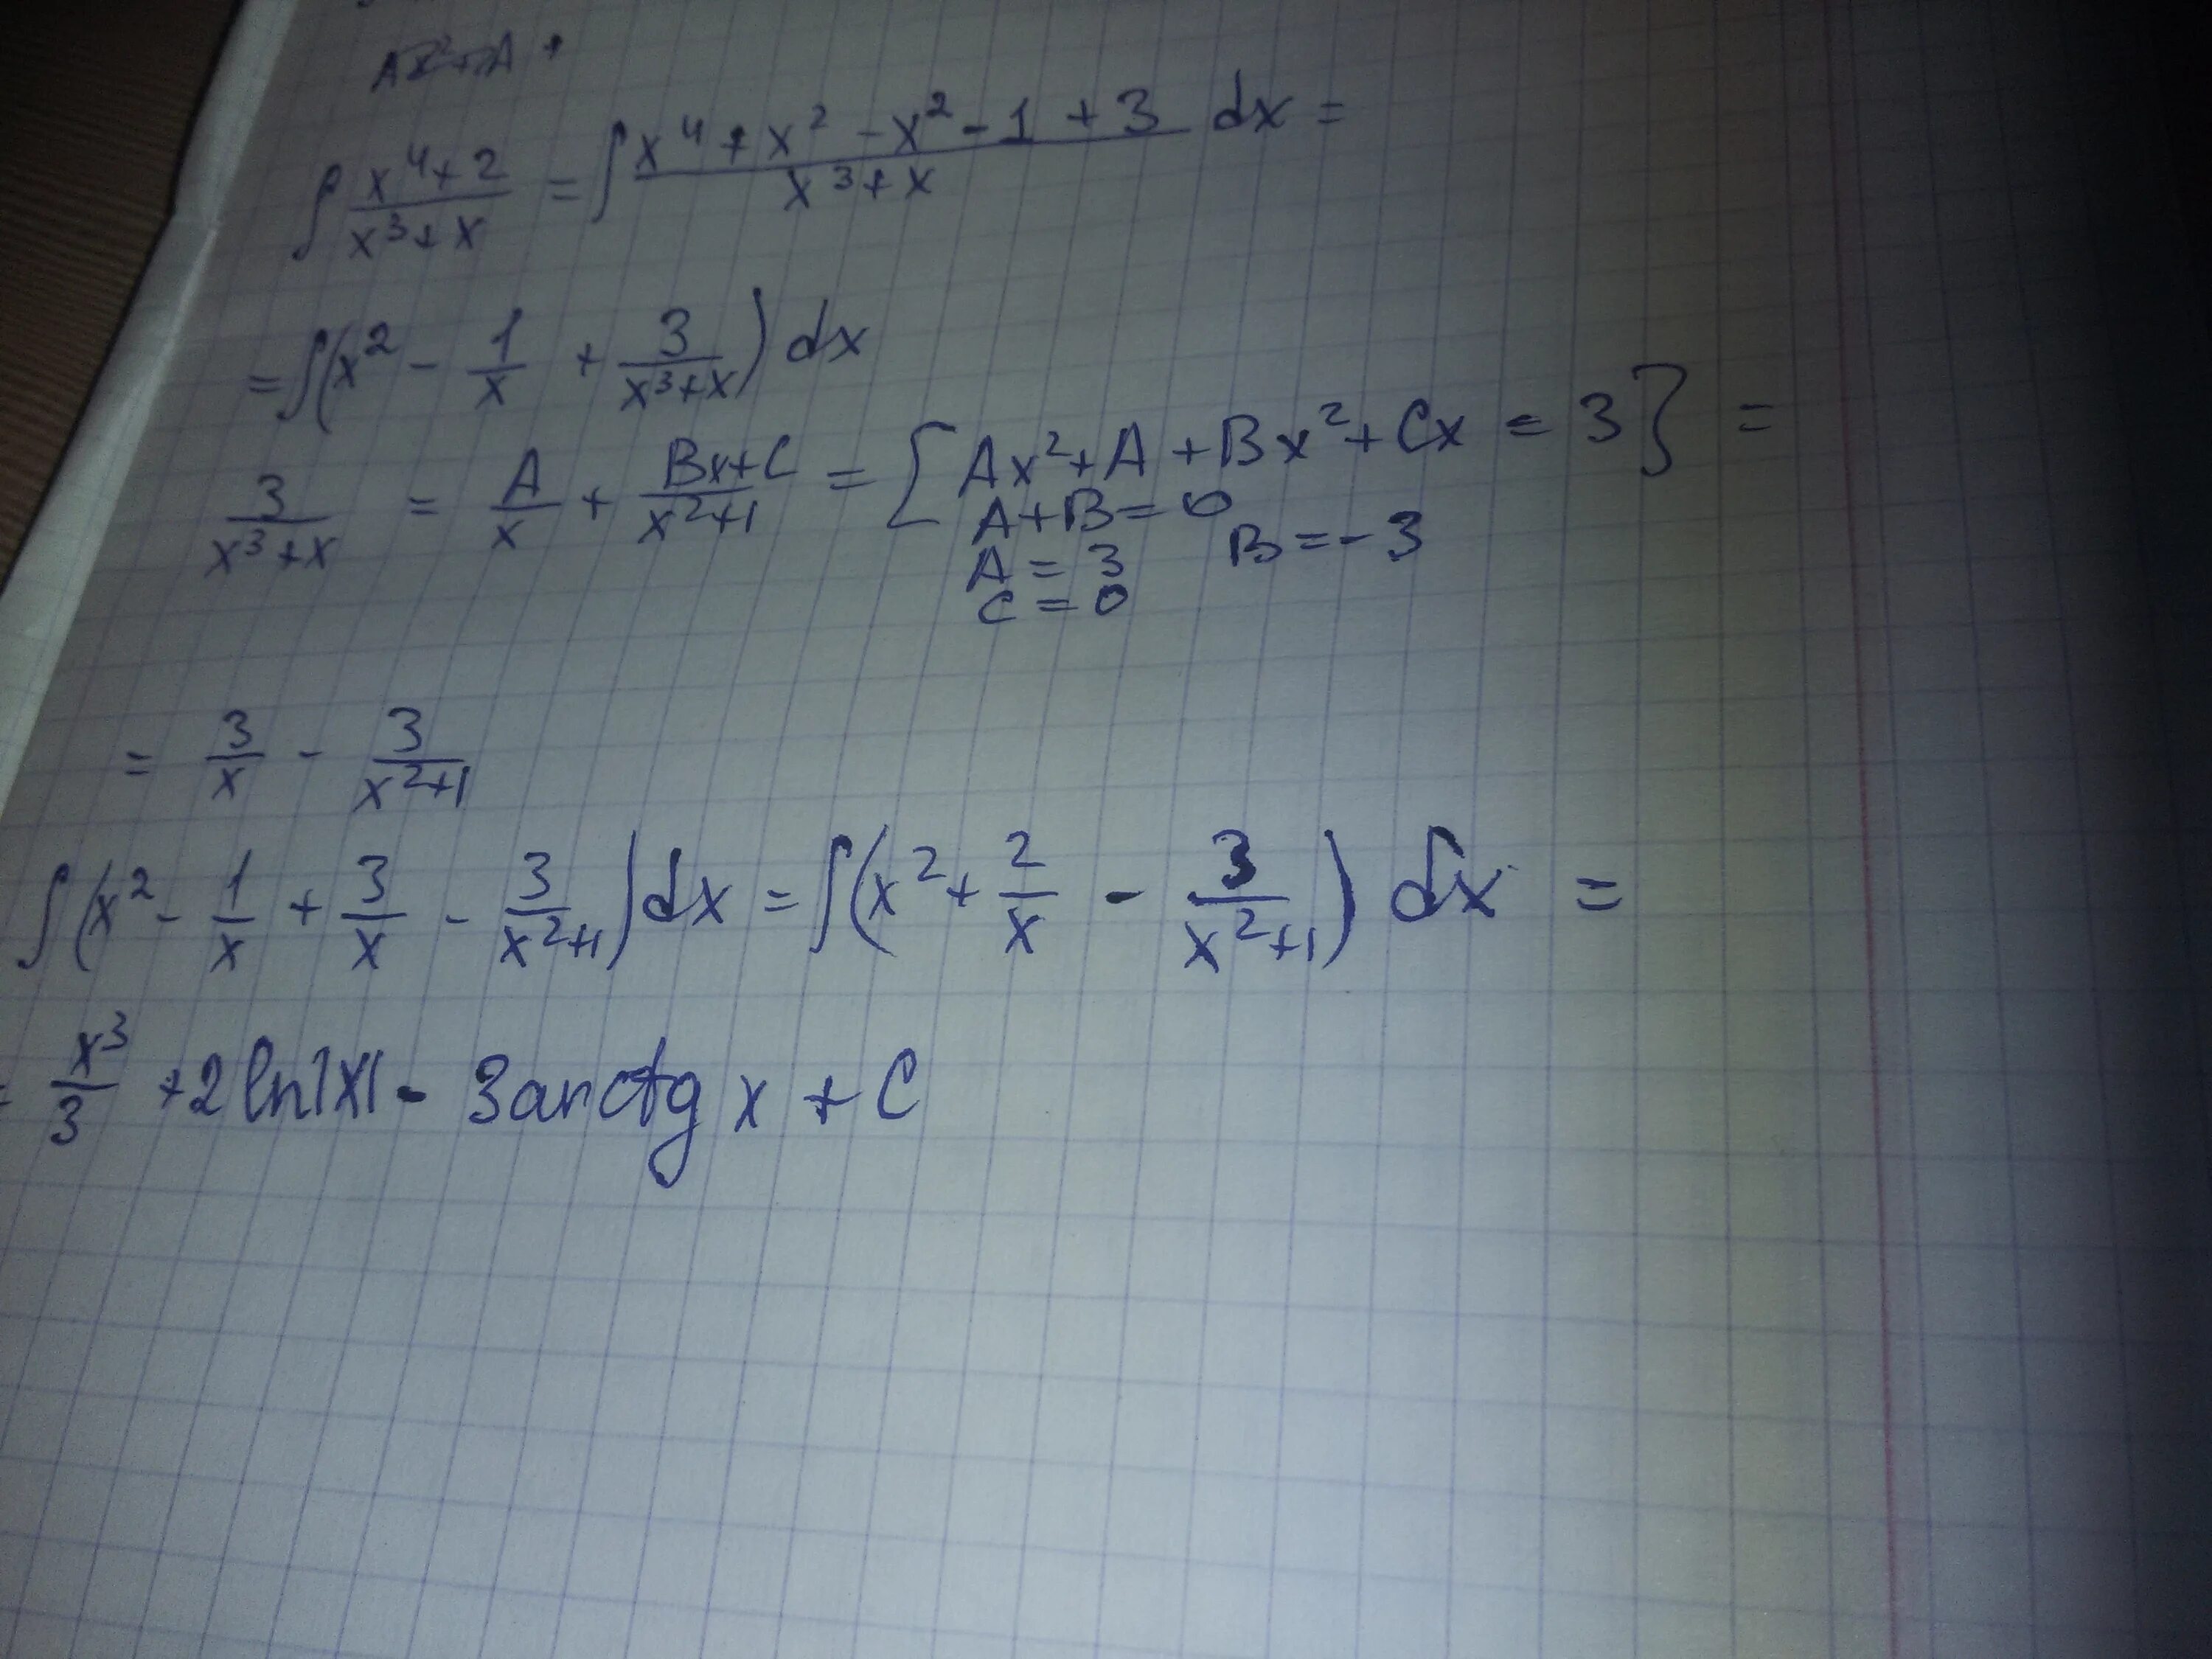 Ax²+A +
∫ (x⁴+2)/(x³+x) = ∫ (x⁴+x²-x²-1+3)/(x³+x) dx =
= ∫(x² - 1/x + 3/(x³+x)) dx
3/(x³+x) = A/x + (Bx+C)/(x²+1) = [Ax²+A+Bx²+Cx = 3} =
A+B=0
B=-3
A=3
C=0
= 3/x - 3/(x²+1)
∫(x² - 1/x + 3/x - 3/(x²+1))dx = ∫(x² + 2/x - 3/(x²+1)) dx =
= x³/3 + 2 ln|x| - 3 arctg x + C